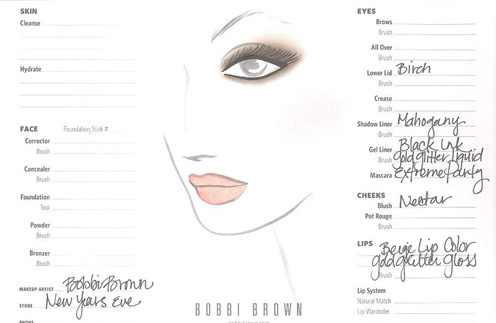 SKIN
Cleanse
Hydrate
FACE Foundation Stick #
Corrector
Brush
Concealer
Brush
Foundation
Tool
Powder
Brush
Bronzer
Brush
MAKEUP ARTIST Bobbi Brown
STORE New Years Eve
PHONE
BOBBI BROWN
EYES
Brows
Brush
All Over
Brush
Lower Lid Birch
Brush
Crease
Brush
Shadow Liner Mahogany
Brush
Gel Liner Black Ink
Brush gold glitter liquid
Mascara Extreme Party
CHEEKS
Blush Nectar
Pot Rouge
Brush
LIPS Beige Lip Color
gold glitter gloss
Brush
Lip System
Natural Match
Lip Wardrobe